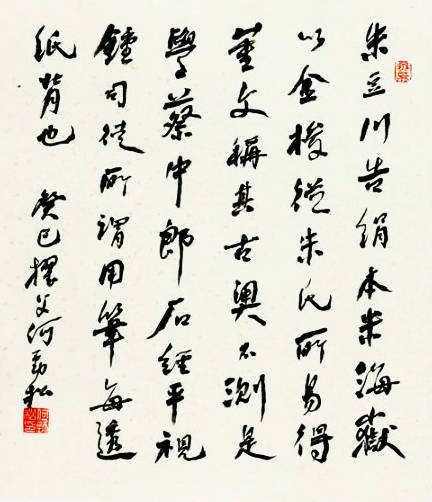 朱立川告絹本米海嶽
以金梭從朱氏所易得
董文稱其古奧不測是
學蔡中郎石經平視
鐘司徒所謂用筆每透
紙背也 癸巳 父何勁松